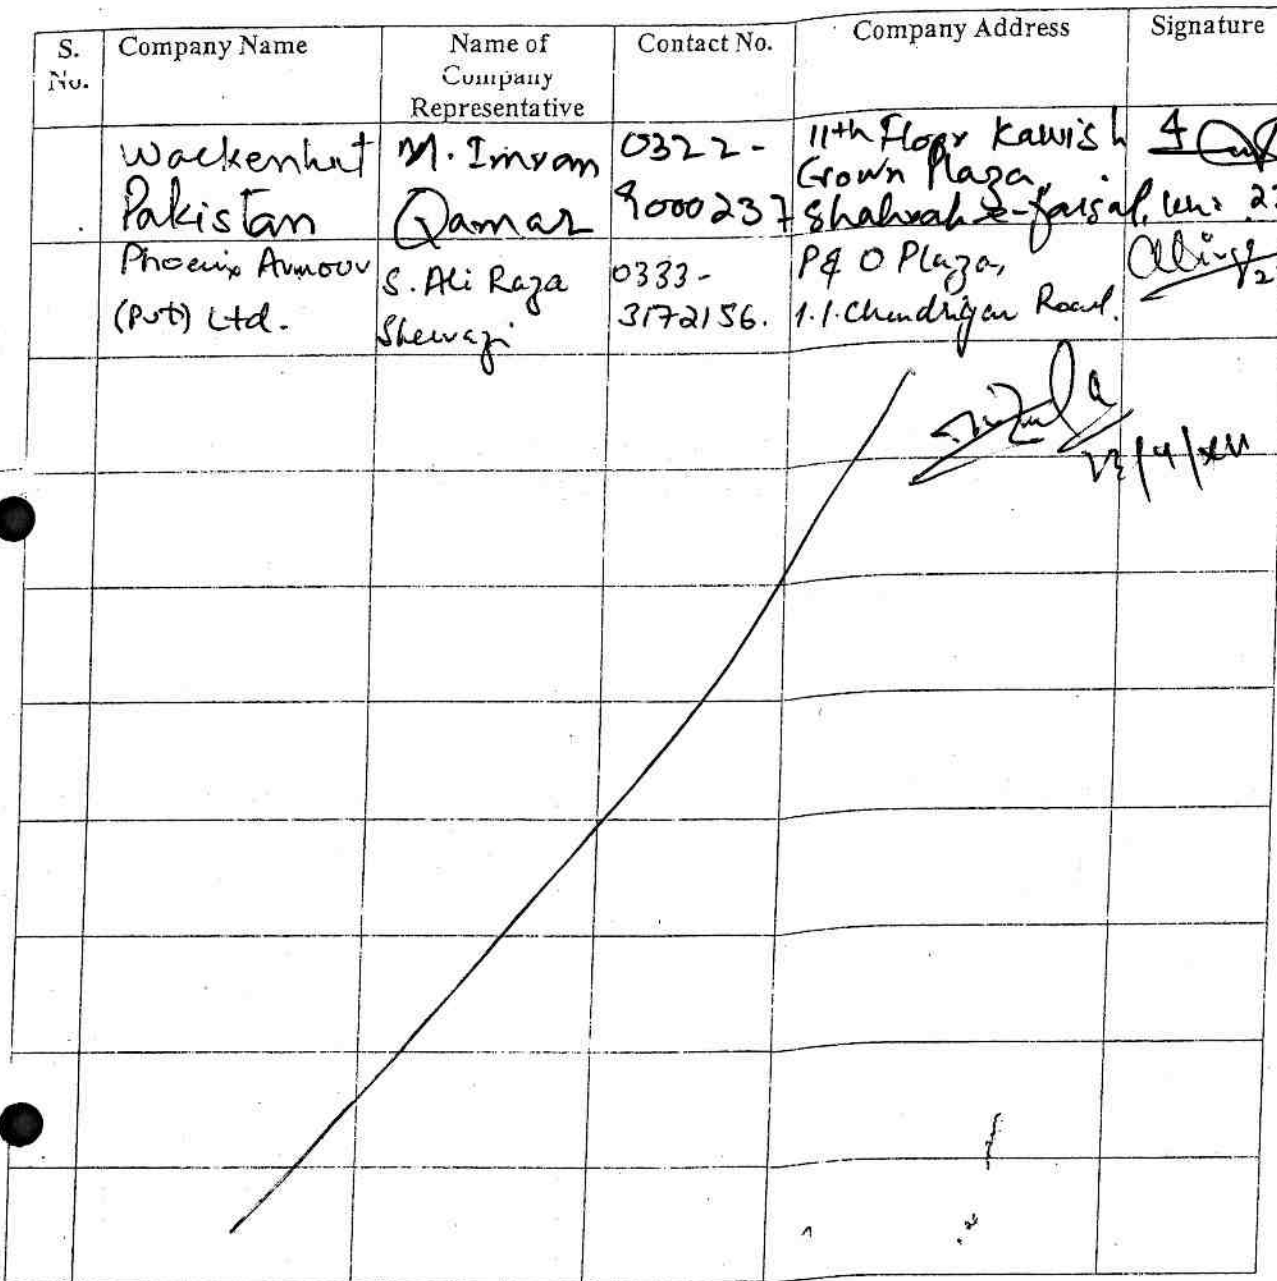 S. No.
Company Name
Name of Company Representative
Contact No.
Company Address
Signature
Wackenhut Pakistan
M. Imran Qamar
0322-9000237
11th Floor Kawish Crown Plaza, Shahrah-e-faisal, Khi
Phoenix Armour (Pvt) Ltd.
S. Ali Raza Sherazi
0333-3172156.
P & O Plaza, I.I. Chundrigar Road.